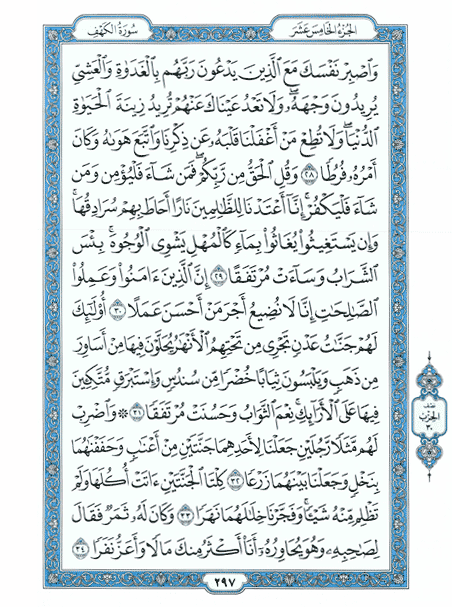 الجزء الخامس عشر
سورة الكهف
وَٱصْبِرْ نَفْسَكَ مَعَ ٱلَّذِينَ يَدْعُونَ رَبَّهُم بِٱلْغَدَوٰةِ وَٱلْعَشِيِّ
يُرِيدُونَ وَجْهَهُۥ وَلَا تَعْدُ عَيْنَاكَ عَنْهُمْ تُرِيدُ زِينَةَ ٱلْحَيَوٰةِ
ٱلدُّنْيَا وَلَا تُطِعْ مَنْ أَغْفَلْنَا قَلْبَهُۥ عَن ذِكْرِنَا وَٱتَّبَعَ هَوَىٰهُ وَكَانَ
أَمْرُهُۥ فُرُطًا ٢٨ وَقُلِ ٱلْحَقُّ مِن رَّبِّكُمْ فَمَن شَآءَ فَلْيُؤْمِن وَمَن
شَآءَ فَلْيَكْفُرْ إِنَّآ أَعْتَدْنَا لِلظَّـٰلِمِينَ نَارًا أَحَاطَ بِهِمْ سُرَادِقُهَا
وَإِن يَسْتَغِيثُوا۟ يُغَاثُوا۟ بِمَآءٍ كَٱلْمُهْلِ يَشْوِى ٱلْوُجُوهَ بِئْسَ
ٱلشَّرَابُ وَسَآءَتْ مُرْتَفَقًا ٢٩ إِنَّ ٱلَّذِينَ ءَامَنُوا۟ وَعَمِلُوا۟
ٱلصَّـٰلِحَـٰتِ إِنَّا لَا نُضِيعُ أَجْرَ مَنْ أَحْسَنَ عَمَلًا ٣٠ أُو۟لَـٰٓئِكَ
لَهُمْ جَنَّـٰتُ عَدْنٍ تَجْرِى مِن تَحْتِهِمُ ٱلْأَنْهَـٰرُ يُحَلَّوْنَ فِيهَا مِنْ أَسَاوِرَ
مِن ذَهَبٍ وَيَلْبَسُونَ ثِيَابًا خُضْرًا مِّن سُندُسٍ وَإِسْتَبْرَقٍ مُّتَّكِـِٔينَ
فِيهَا عَلَى ٱلْأَرَآئِكِ نِعْمَ ٱلثَّوَابُ وَحَسُنَتْ مُرْتَفَقًا ٣١ ۞ وَٱضْرِبْ
لَهُم مَّثَلًا رَّجُلَيْنِ جَعَلْنَا لِأَحَدِهِمَا جَنَّتَيْنِ مِنْ أَعْنَـٰبٍ وَحَفَفْنَـٰهُمَا
بِنَخْلٍ وَجَعَلْنَا بَيْنَهُمَا زَرْعًا ٣٢ كِلْتَا ٱلْجَنَّتَيْنِ ءَاتَتْ أُكُلَهَا وَلَمْ
تَظْلِم مِّنْهُ شَيْـًٔا وَفَجَّرْنَا خِلَـٰلَهُمَا نَهَرًا ٣٣ وَكَانَ لَهُۥ ثَمَرٌ فَقَالَ
لِصَـٰحِبِهِۦ وَهُوَ يُحَاوِرُهُۥٓ أَنَا۠ أَكْثَرُ مِنكَ مَالًا وَأَعَزُّ نَفَرًا ٣٤
نصف
الحزب
٣٠
٢٩٧